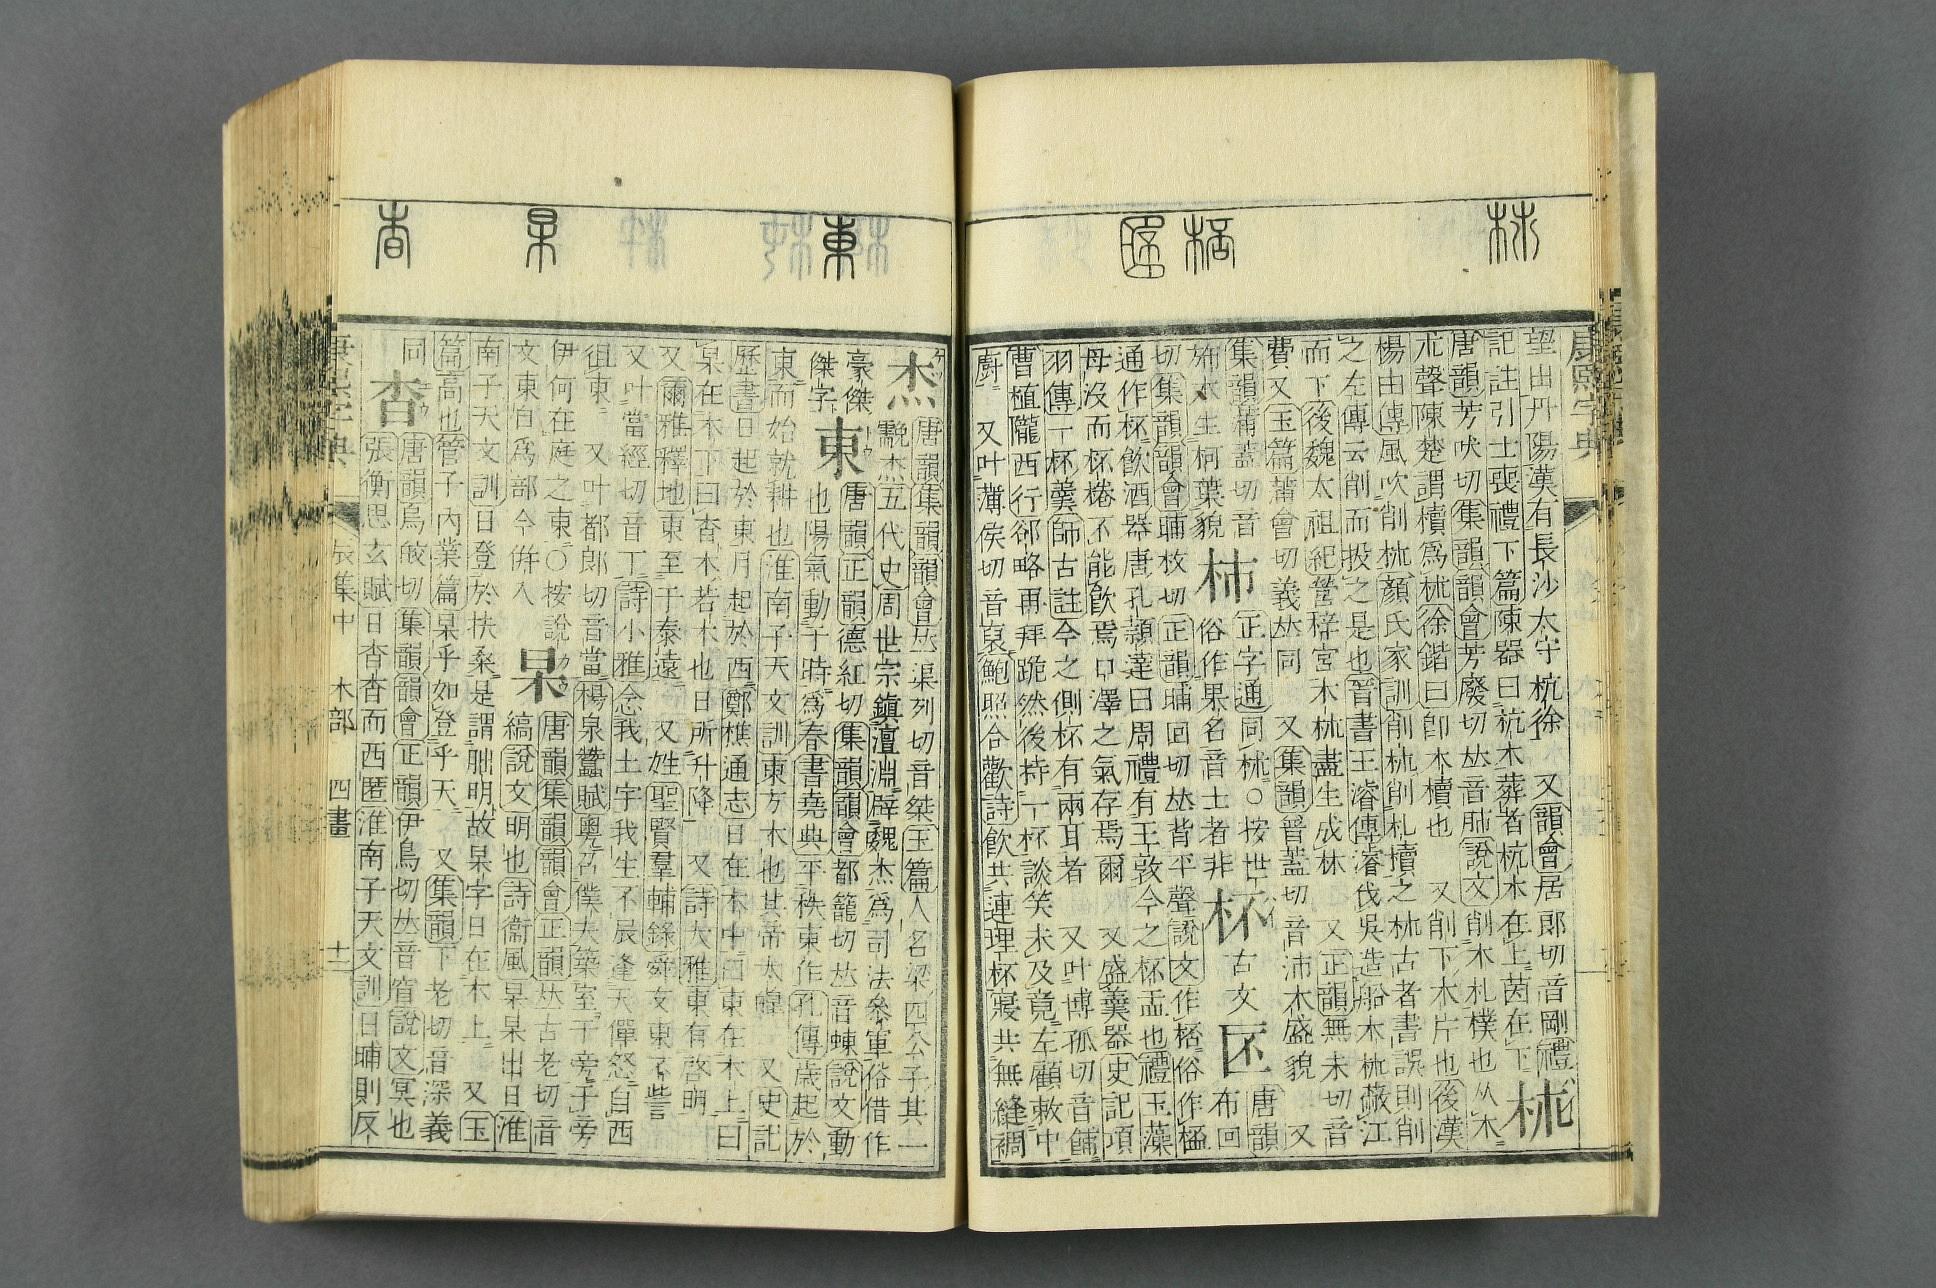 東 杲 杳
康熙字典
望出丹陽漢有長沙太守杭徐 又韻會居郎切音剛禮
記註引士喪禮下篇陳器曰杭木葬者杭木在上茵在下
杮
唐韻芳吠切集韻韻會芳廢切𠀤音肺說文削木札樸也从木
𣎵聲陳楚謂櫝爲杮徐鍇曰卽木牘也 又削下木片也後漢
楊由傳風吹削杮顏氏家訓削杮削札牘之杮古者書誤則削
之左傳云削而投之是也晉書王濬傳濬伐吳造船木杮蔽江
而下後魏太祖紀營梓宮木杮盡生成林 又正韻無未切音
費又玉篇蒲會切義𠀤同 又集韻普蓋切音沛木盛貌 又
集韻蒲蓋切音
旆木生柯葉貌
杮
正字通同杮○按世
俗作果名音士者非
杯
古文
唐韻
布回
切集韻韻會晡枚切正韻晡回切𠀤背平聲說文作桮俗作㮎
通作杯飮酒器唐孔穎達曰周禮有玉敦今之杯盂也禮玉藻
母沒而杯棬不能飮焉口澤之氣存焉爾 又盛羹器史記項
羽傳一杯羹師古註今之側杯有兩耳者 又叶博孤切音餔
曹植隴西行郤略再拜跪然後持一杯談笑未及竟左顧敕中
廚 又叶蒲侯切音裒鮑照合歡詩飮共連理杯寢共無縫裯
杰
唐韻集韻韻會𠀤渠列切音桀玉篇人名梁四公子其一
杰五代史周世宗鎮澶淵辟魏杰爲司法參軍俗借作
豪傑
傑字
東
唐韻正韻德紅切集韻韻會都籠切𠀤音蝀說文動
也陽氣動于時爲春書堯典平秩東作孔傳歲起於
東而始就耕也淮南子天文訓東方木也其帝太皥 又史記
歷書日起於東月起於西鄭樵通志日在木中曰東在木上曰
杲在木下曰杳木若木也日所升降 又詩大雅東有啓明
又爾雅釋地東至于泰遠 又姓聖賢羣輔錄舜友東不訾
又叶當經切音丁詩小雅念我土宇我生不辰逢天僤怒自西
徂東 又叶都郎切音當楊泉蠶賦粤召僕夫築室于旁于旁
伊何在庭之東○按說
文東自爲部今倂入
杲
唐韻集韻韻會正韻𠀤古老切音
縞說文明也詩衞風杲杲出日淮
南子天文訓日登於扶桑是謂朏明故杲字日在木上 又玉
篇高也管子內業篇杲乎如登乎天 又集韻下老切音深義
同
杳
唐韻烏皎切集韻韻會正韻伊鳥切𠀤音窅說文冥也
張衡思玄賦日杳杳而西匿淮南子天文訓日晡則反
康熙字典 辰集中 木部 四畫 十二